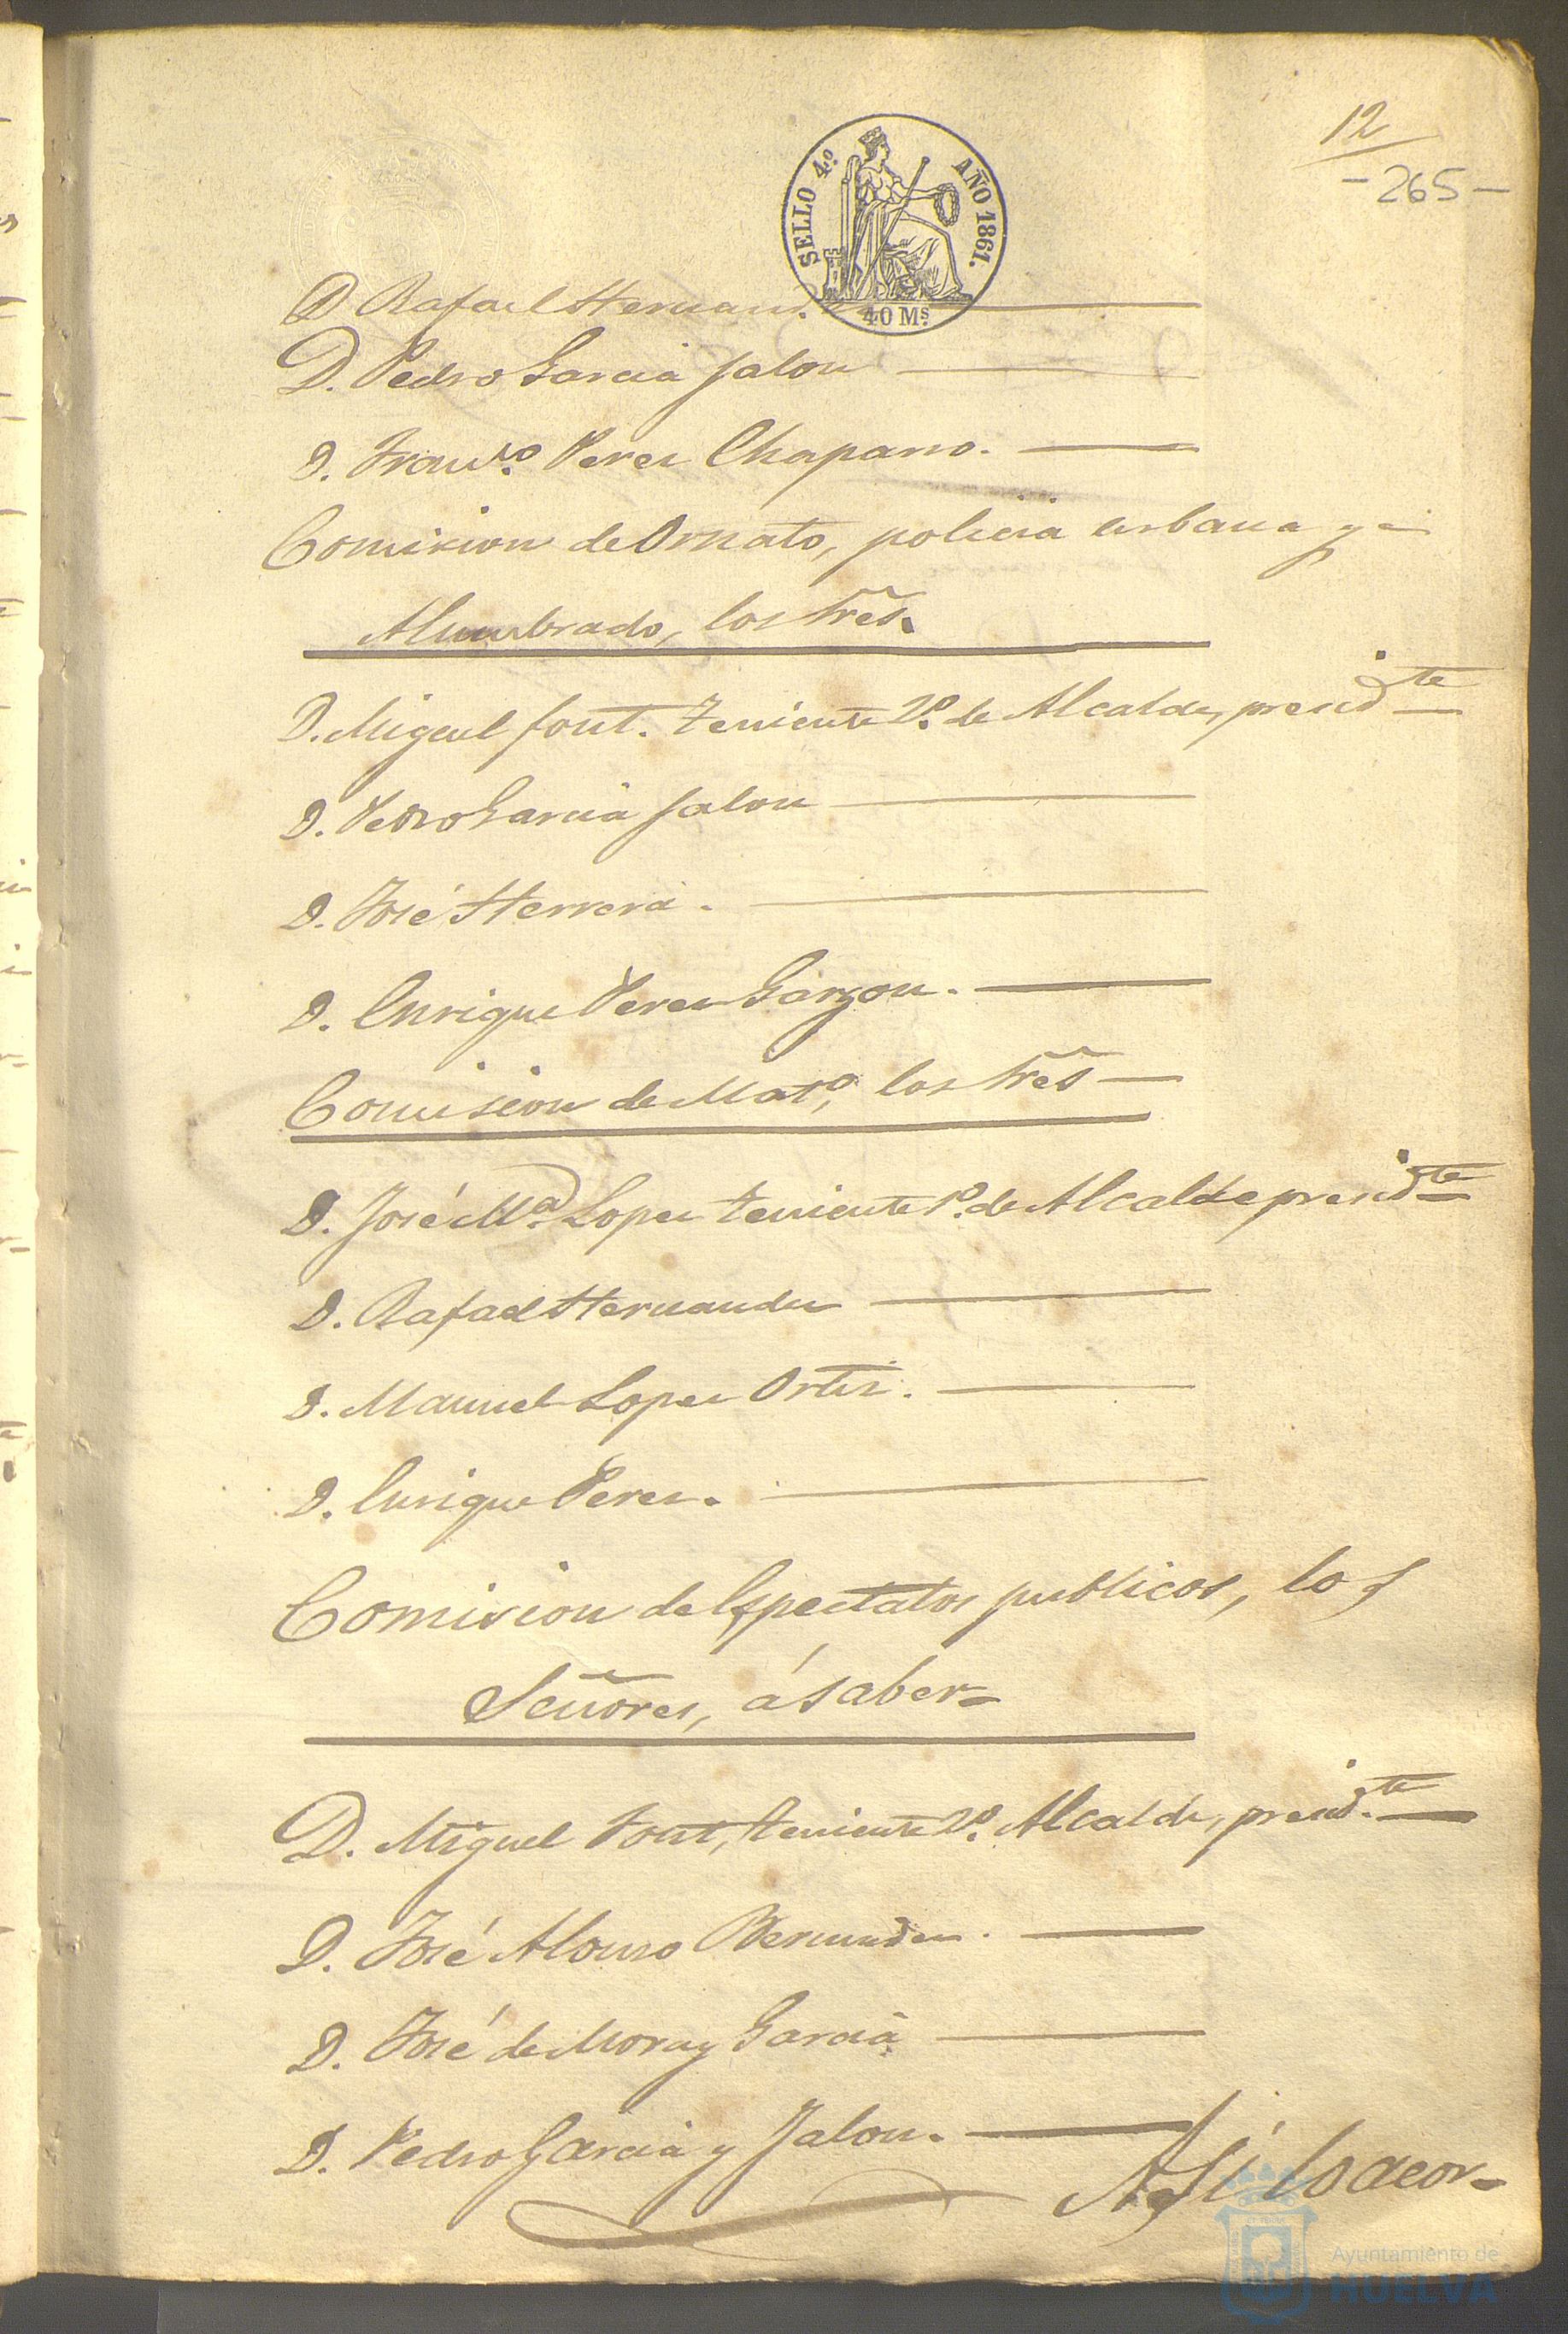 12
-265-
SELLO 4º. AÑO 1861.
40 Ms.
D. Rafael Hernan.
D. Pedro Garcia Jalon
D. Franco. Perez Chaparro.
Comision de Ornato, policia urbana y
Alumbrado, los Sres.
D. Miguel Font. Teniente 2º. de Alcalde, presidte
D. Pedro Garcia Jalon
D. José Herrera.
D. Enrique Perez Garzon.
Comision de Mato, los Sres
D. José Ma. Lopez teniente 1º. de Alcalde presidte
D. Rafael Hernandez
D. Manuel Lopez Ortiz.
D. Enrique Perez.
Comision de Espectalos publicos, los
Señores, á saber=
D. Miguel Font, teniente 2º. Alcalde, presidte
D. José Alonso Bermudez.
D. José de Mora y Garcia
D. Pedro Garcia y Jalon.
Así lo acor=
Ayuntamiento de
HUELVA